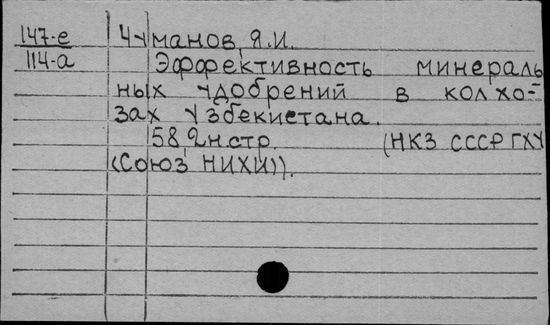 147-е Чуманов, Я.И.
114-а Эффективность минераль
ных удобрений в колхо-
зах Узбекистана.
58, 2н.стр. (НКЗ СССР ГХУ
(Союз НИХИ)).